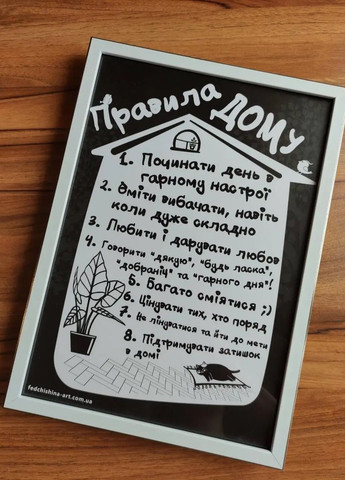 Правила ДОМУ
1. Починати день в
гарному настрої
2. Вміти вибачати, навіть
коли дуже складно
3. Любити і дарувати любов
4. Говорити "дякую", "будь ласка",
"добраніч" та "гарного дня"!
5. Багато сміятися ;)
6. Цінувати тих, хто поряд
7. Не лінуватися та йти до мети
8. Підтримувати затишок
в домі
fedchishina-art.com.ua